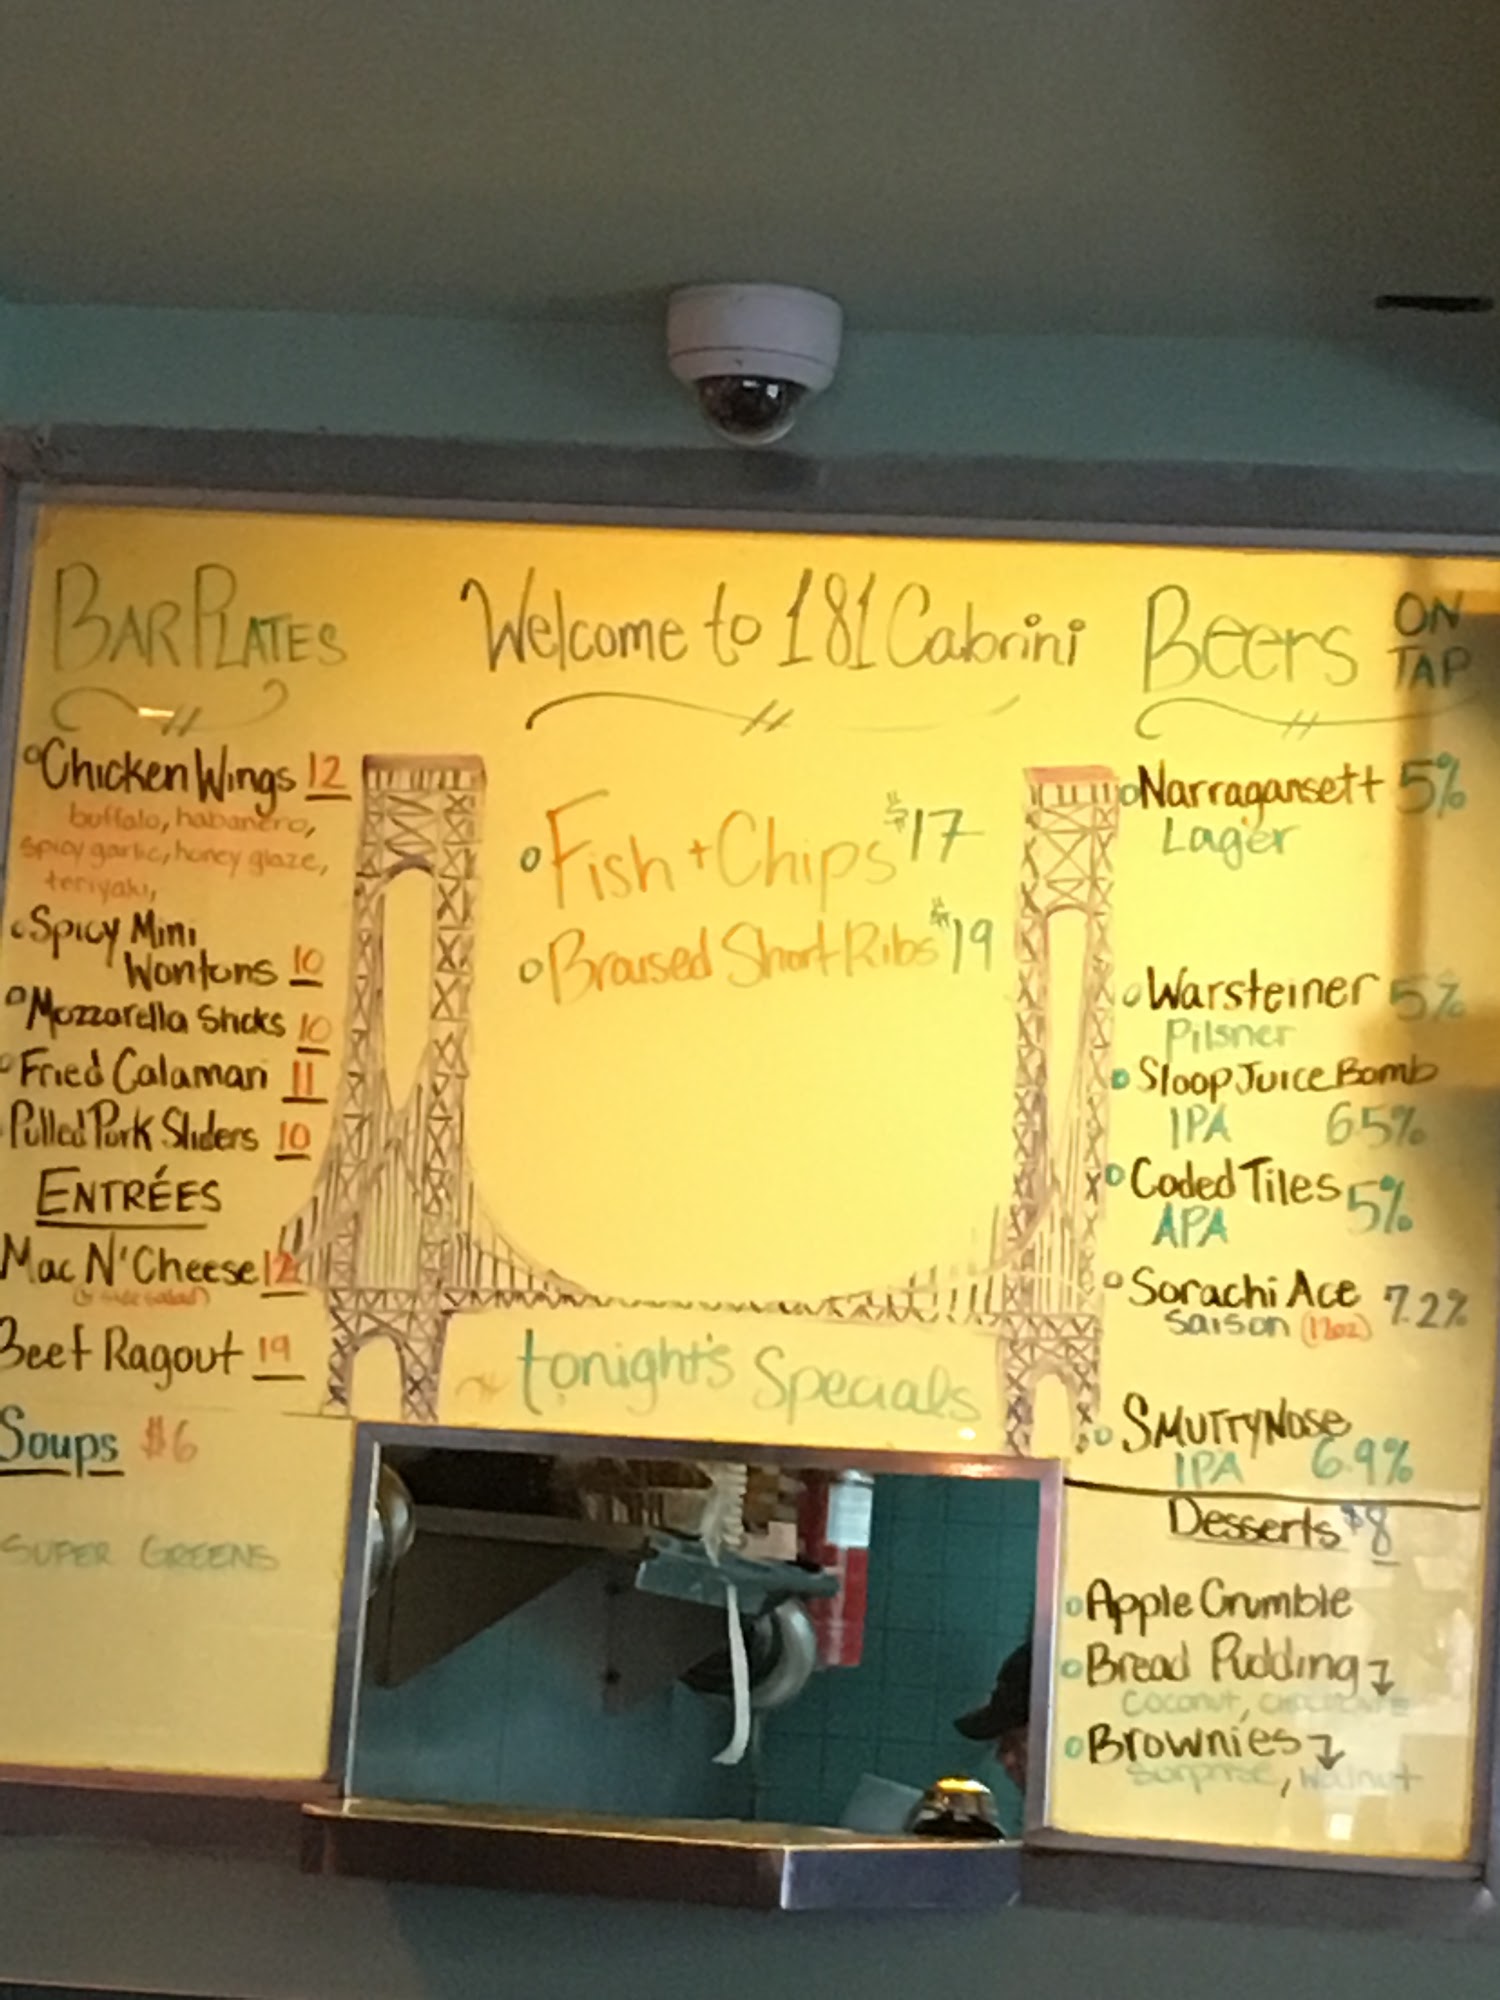 BAR PLATES
Chicken Wings 12
buffalo, habanero,
spicy garlic, honey glaze,
teriyaki,
Spicy Mini
Wontons 10
Mozzarella Sticks 10
Fried Calamari 11
Pulled Pork Sliders 10
ENTRÉES
Mac N' Cheese 12
Beef Ragout 19
Soups $6
SUPER GREENS
Welcome to 181 Cabrini
Fish + Chips $17
Braised Short Ribs $19
tonight's Specials
Beers ON TAP
Narragansett 5%
Lager
Warsteiner 5%
Pilsner
Sloop Juice Bomb
IPA 6.5%
Coded Tiles 5%
APA
Sorachi Ace 7.2%
Saison (12oz)
SMUTTYNOSE
IPA 6.9%
Desserts $8
Apple Crumble
Bread Pudding
Coconut, chocolate
Brownies
Surprise, Walnut